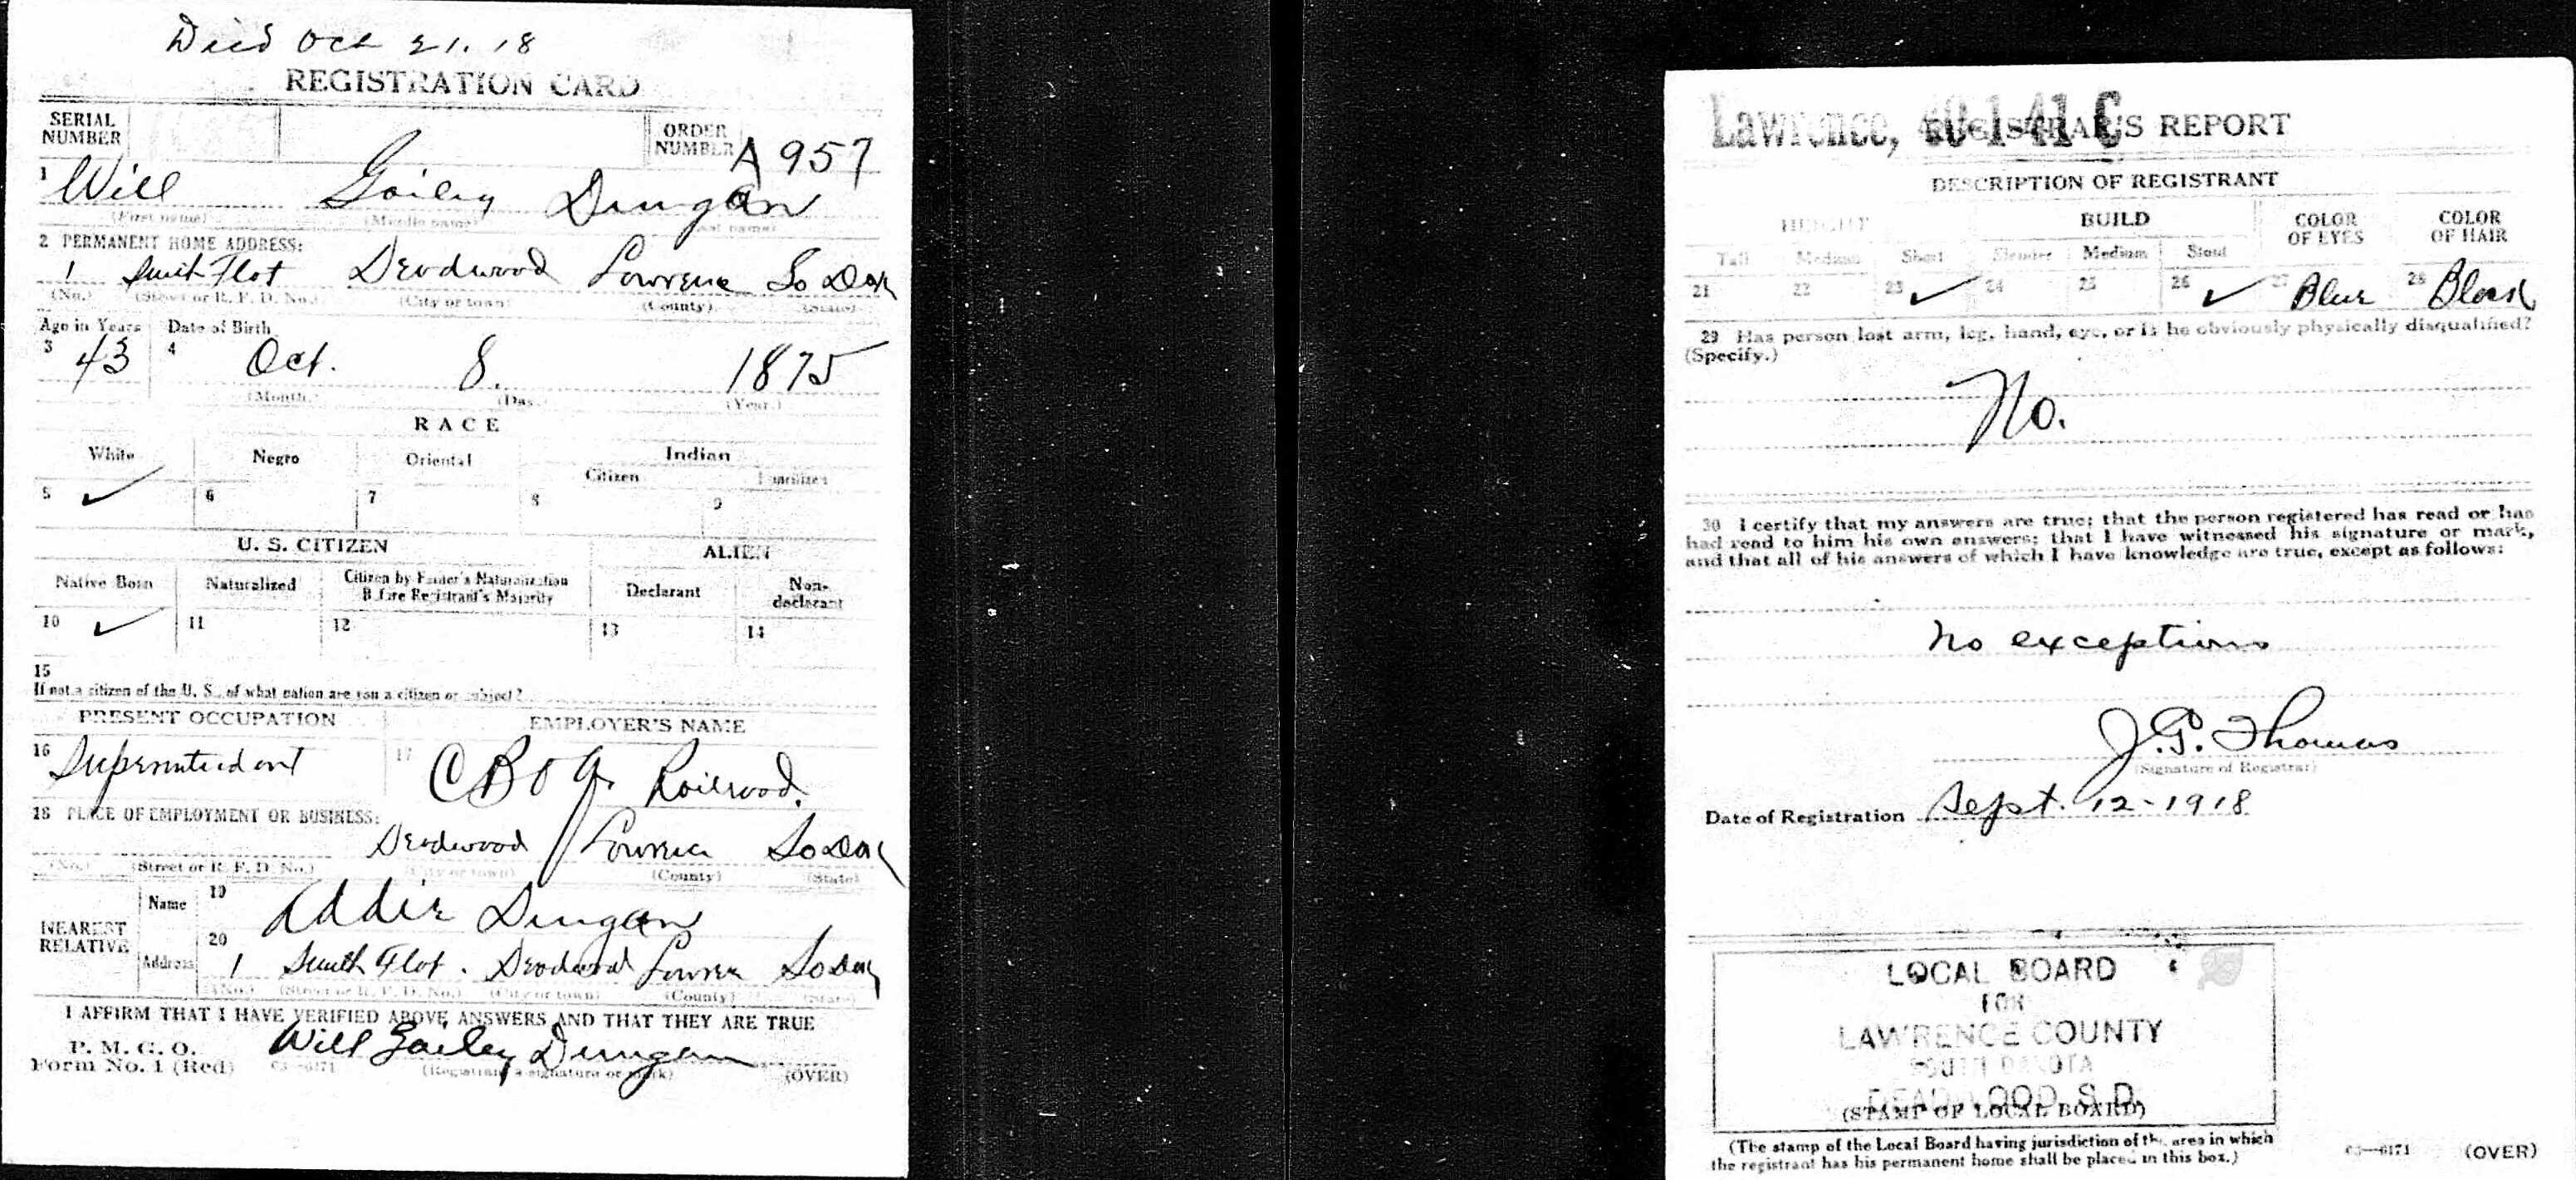 Died Oct 21. 18
REGISTRATION CARD
SERIAL NUMBER
ORDER NUMBER A 957
1 Will Gailey Dungan
(First name) (Middle name) (Last name)
2 PERMANENT HOME ADDRESS:
1 Smith Flat Deadwood Lawrence So Dak
(No.) (Street or R. F. D. No.) (City or town) (County) (State)
Age in Years Date of Birth
3 43 4 Oct. 8. 1875
(Month.) (Day.) (Year.)
RACE
White Negro Oriental Indian
Citizen
5 ✓ 6 7 8 9
U. S. CITIZEN ALIEN
Native Born Naturalized Citizen by Father's Naturalization Before Registrant's Majority Declarant Non-declarant
10 ✓ 11 12 13 14
15
If not a citizen of the U. S., of what nation are you a citizen or subject?
PRESENT OCCUPATION EMPLOYER'S NAME
16 Superintendant 17 C B & Q. Railroad.
18 PLACE OF EMPLOYMENT OR BUSINESS:
Deadwood Lawrence So Dak
(No.) (Street or R. F. D. No.) (City or town) (County) (State)
NEAREST RELATIVE
Name 19 Addie Dungan
Address 20 1 Smith Flat. Deadwood Lawrence So Dak
(No.) (Street or R. F. D. No.) (City or town) (County) (State)
I AFFIRM THAT I HAVE VERIFIED ABOVE ANSWERS AND THAT THEY ARE TRUE
P. M. G. O.
Form No. 1 (Red) 03—6171 Will Gailey Dungan
(Registrant's signature or mark) (OVER)
Lawrence, 40-1-41 C
REGISTRAR'S REPORT
DESCRIPTION OF REGISTRANT
HEIGHT BUILD COLOR OF EYES COLOR OF HAIR
Tall Medium Short Slender Medium Stout
21 22 23 ✓ 24 25 26 ✓ 27 Blue 28 Black
29 Has person lost arm, leg, hand, eye, or is he obviously physically disqualified?
(Specify.)
No.
30 I certify that my answers are true; that the person registered has read or has
had read to him his own answers; that I have witnessed his signature or mark,
and that all of his answers of which I have knowledge are true, except as follows:
no exceptions
J. G. Thomas
(Signature of Registrar)
Date of Registration Sept. 12-1918
LOCAL BOARD
FOR
LAWRENCE COUNTY
SOUTH DAKOTA
DEADWOOD, S. D.
(STAMP OF LOCAL BOARD)
(The stamp of the Local Board having jurisdiction of the area in which
the registrant has his permanent home shall be placed in this box.)
03—6171 (OVER)